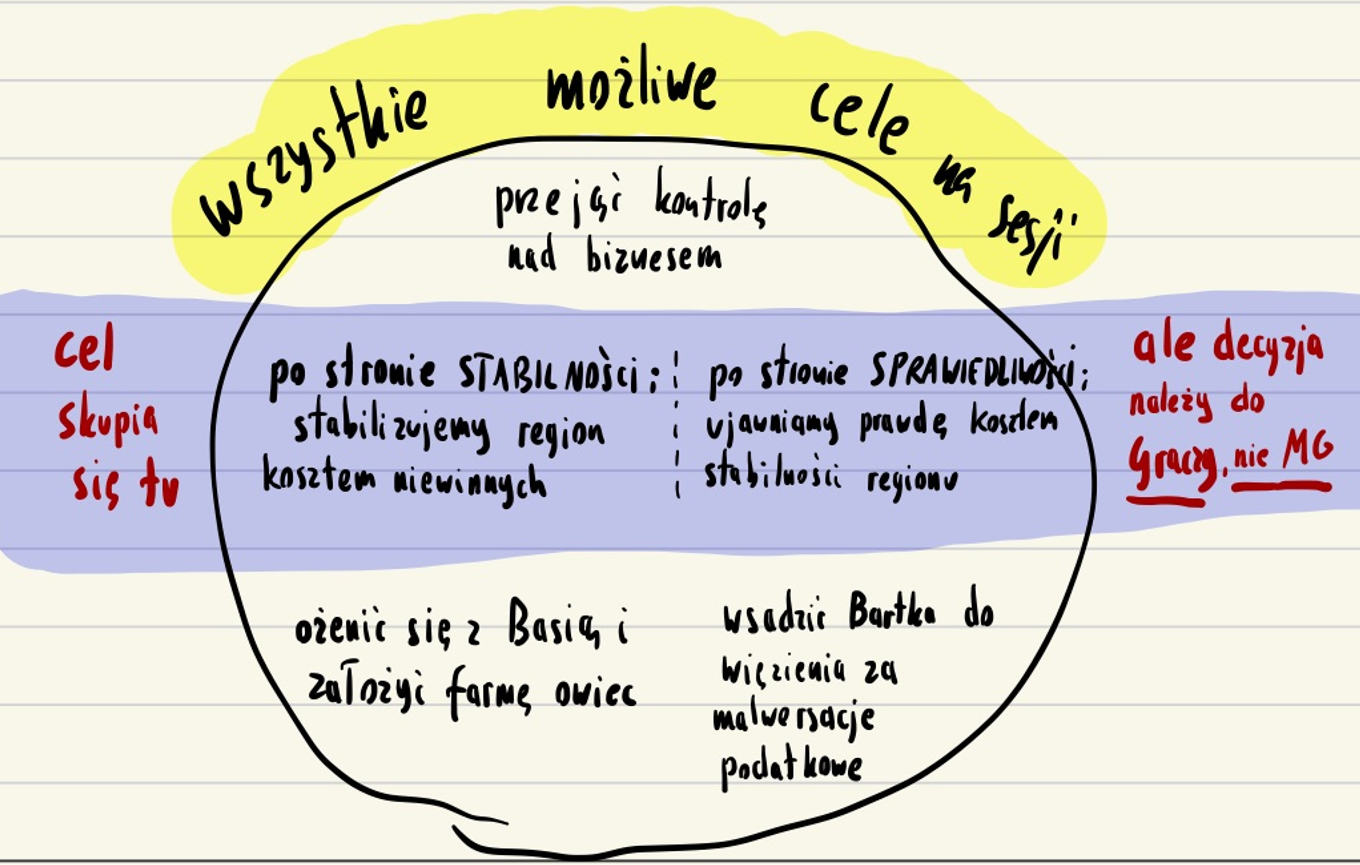 wszystkie możliwe cele na sesji
przejąć kontrolę
nad biznesem
cel
skupia
się tu
po stronie STABILNOŚci:
stabilizujemy region
kosztem niewinnych
po stronie SPRAWIEDLIWOŚci:
ujawniamy prawdę kosztem
stabilności regionu
ale decyzja
należy do
Graczy, nie MG
ożenić się z Basią i
założyć farmę owiec
wsadzić Bartka do
więzienia za
malwersacje
podatkowe